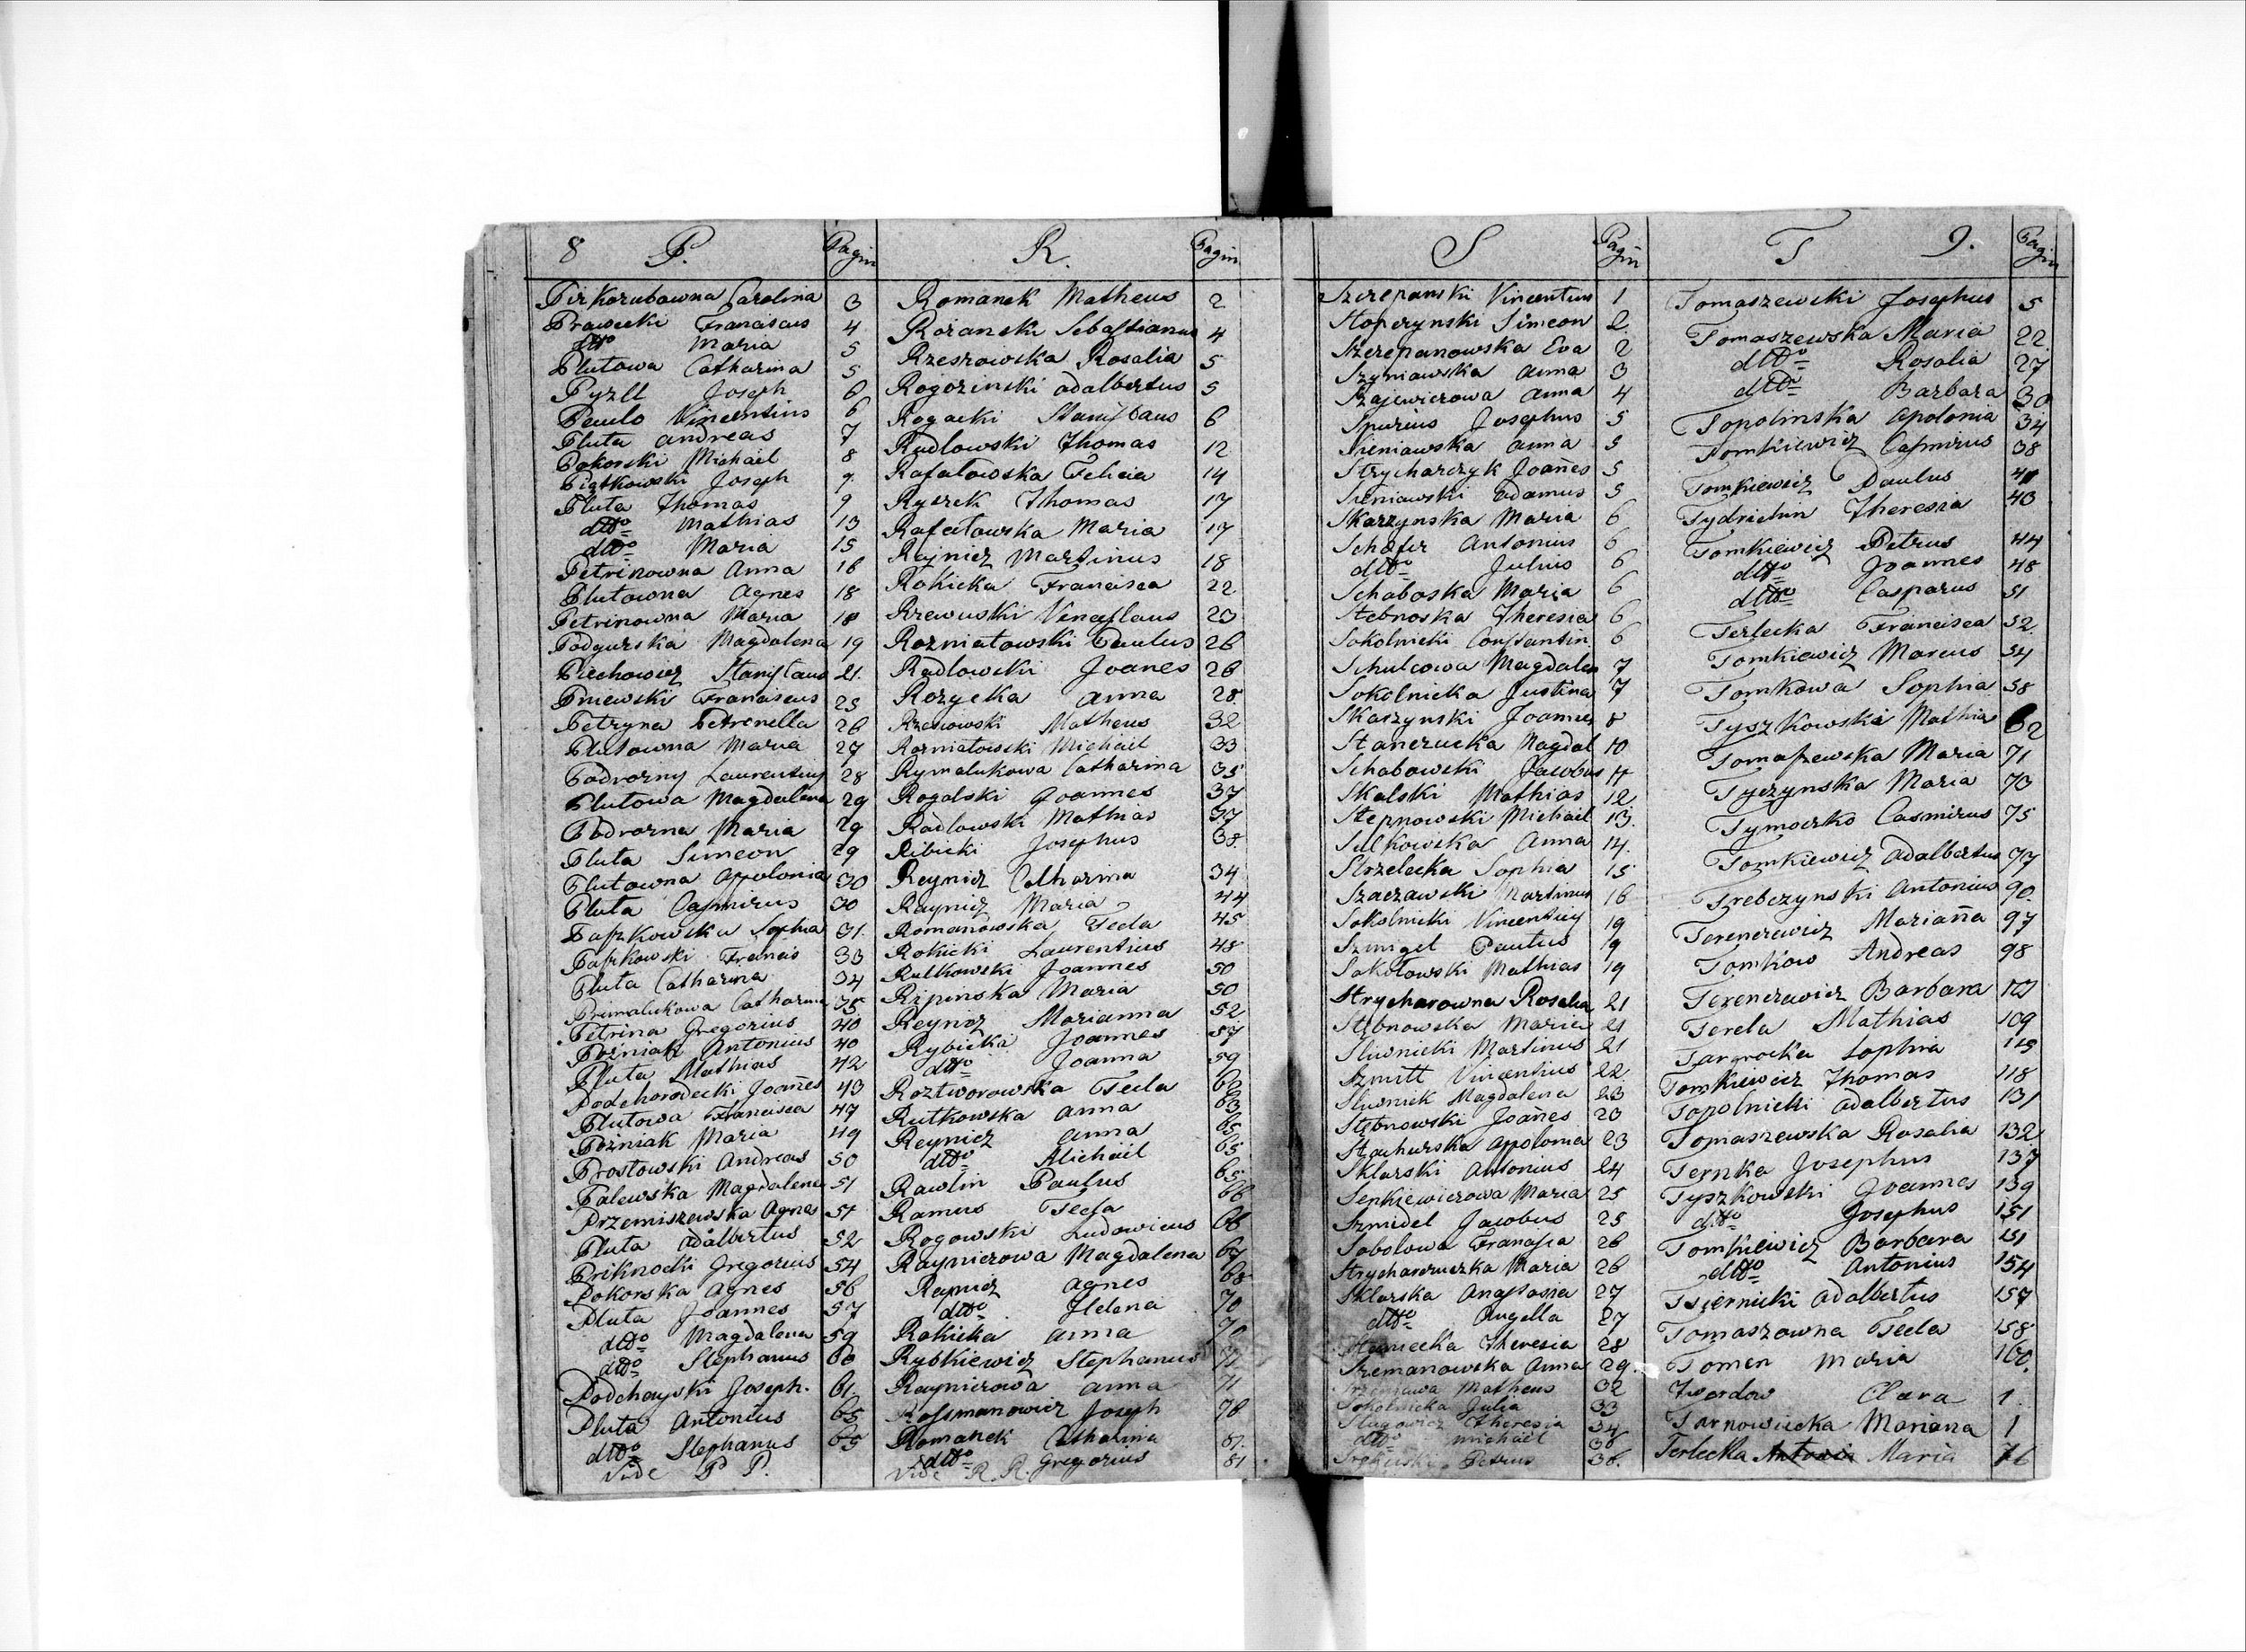 8 P. Pagin
Pirkozubowna Carolina 3
Prawecki Franciscus 4
dtto Maria 5
Plutowa Catharina 5
Pyzll Joseph 6
Paulo Vincentius 6
Pluta Andreas 7
Pokorski Michael 8
Piątkowski Joseph 9
Pluta Thomas 9
dtto Mathias 13
dtto Maria 15
Petrinowna Anna 16
Plutowna Agnes 18
Petrinowna Maria 18
Podgurska Magdalena 19
Piechowicz Stanislaus 21.
Pniewski Franciscus 25
Petryna Petronella 26
Plutowna Maria 27
Podvorny Laurentius 28
Plutowa Magdalena 29
Podvorna Maria 29
Pluta Simeon 29
Plutowna Appolonia 30
Pluta Casmirus 30
Paszkowska Sophia 31.
Paszkowski Francis 33
Pluta Catharina 34
Primalukowa Catharina 35
Petrina Gregorius 40
Pozniak Antonius 40
Pluta Mathias 42
Podchorodecki Joañes 43
Plutowa Francisca 47
Pożniak Maria 49
Prostowski Andreas 50
Palewska Magdalena 51
Przemiszewska Agnes 51
Pluta Adalbertus 52
Priknocki Gregorius 54
Pokorska Agnes 56
Pluta Joannes 57
dtto Magdalena 59
dtto Stephanus 60
Podchayski Joseph. 61
Pluta Antonius 65
dtto Stephanus 65
Vide P P.
R. Pagin
Romanek Matheus 2
Rożanski Sebastianus 4
Rzeszowska Rosalia 5
Rogozinski Adalbertus 5
Rogacki Stanislaus 6
Radlowski Thomas 12
Rafalowska Felicia 14
Ryszek Thomas 17
Rafalowska Maria 17
Rajnicz Martinus 18
Rokicka Francisca 22
Rzewuski Venceslaus 23
Rozniatowski Paulus 26
Radlowski Joanes 26
Rozycka Anna 28
Rzesiowski Matheus 32
Rozniatowski Michael 33
Rymalukowa Catharina 35
Rogalski Joannes 37
Radlowski Mathias 37
Ribicki Josephus 38
Reynicz Catharina 34
Raynicz Maria 44
Romanowska Tecla 45
Rokicki Laurentius 48
Rutkowski Joannes 50
Ripinska Maria 50
Reynicz Marianna 52
Rybicka Joannes 57
dtto Joanna 59
Roztworowska Tecla 62
Rutkowska Anna 63
Reynicz Anna 65
dtto Michael 65
Rawlin Paulus 65
Ramus Tecla 66
Rogowski Ludovicus 66
Raynierowa Magdalena 67
Raynicz Agnes 68
dtto Helena 70
Rokicka Anna 70
Rybkiewicz Stephanus 71
Raynierowa Anna 71
Rossmanowicz Joseph 78
Romanek Catharina 81.
dtto Gregorius 81
Vide R. R.
S Pagin
Szczepanski Vincentius 1
Stopczynski Simeon 2.
Szczepanowska Eva 2
Szyniawska Anna 3
Szajewiczowa Anna 4
Spurius Josephus 5
Sieniawska Anna 5
Strycharczyk Joañes 5
Sieniawski Adamus 5
Skarzynska Maria 6
Schäfer Antonius 6
dtto Julius 6
Schaboska Maria 6
Stebnoska Theresia 6
Sokolnicki Constantin 6
Schulcowa Magdalen 7
Sokolnicka Justina 7
Skaszynski Joannes 8
Stanczucka Magdal 10
Schabowski Jacobus 11
Skalski Mathias 12
Stepnowski Michael 13.
Sulkowska Anna 14.
Strzelecka Sophia 15
Szaczawski Martinus 16
Sokolnicki Vincentius 19
Szmigel Paulus 19
Sokołowski Mathias 19
Strycharowna Rosalia 21
Stębnowska Maria 21
Sliwnicki Martinus 21
Szmitt Vincentius 22
Sliwniek Magdalena 23
Stębnowski Joañes 23
Stachurska Appolonia 23
Sklarski Antonius 24
Senkiewiczowa Maria 25
Szmidel Jacobus 25
Sobolowa Francisca 26
Strycharczuczka Maria 26
Sklarska Anastasia 27
dtto Angella 27
Theresia 28
Szemanowska Anna 29
Matheus 32
Sokolnicka Julia 33
Slugowicz Theresia 34
dtto Michael 36
Petrus 36.
T 9. Pagin
Tomaszewski Josephus 5
Tomaszewska Maria 22.
dtto Rosalia 27
dtto Barbara 30
Topolinska Apolonia 34
Tomkiewicz Casmirus 38
Tomkiewicz Paulus 41
Tydrichin Theresia 43
Tomkiewicz Petrus 44
dtto Joannes 48
dtto Casparus 51
Terlecka Francisca 52
Tomkiewicz Marcus 54
Tomkowa Sophia 58
Tyszkowski Mathia 62
Tomaszewska Maria 71
Tyczynska Maria 73
Tymoczko Casmirus 75
Tomkiewicz Adalbertus 77
Trebczynski Antonius 90.
Terenczewicz Mariaña 97
Tomkow Andreas 98
Terenczewicz Barbara 107
Terela Mathias 109
Targrocka Sophia 115
Tomkiewicz Thomas 118
Topolnicki Adalbertus 131
Tomaszewska Rosalia 132
Ternka Josephus 137
Tyszkowski Joannes 139
dtto Josephus 151
Tomkiewicz Barbara 151
dtto Antonius 154
Tsiernicki Adalbertus 157
Tomaszowna Tecla 158
Tomen Maria 160.
Twardow Clara 1
Tarnowiecka Mariana 1
Terlecka Antonia Maria 76